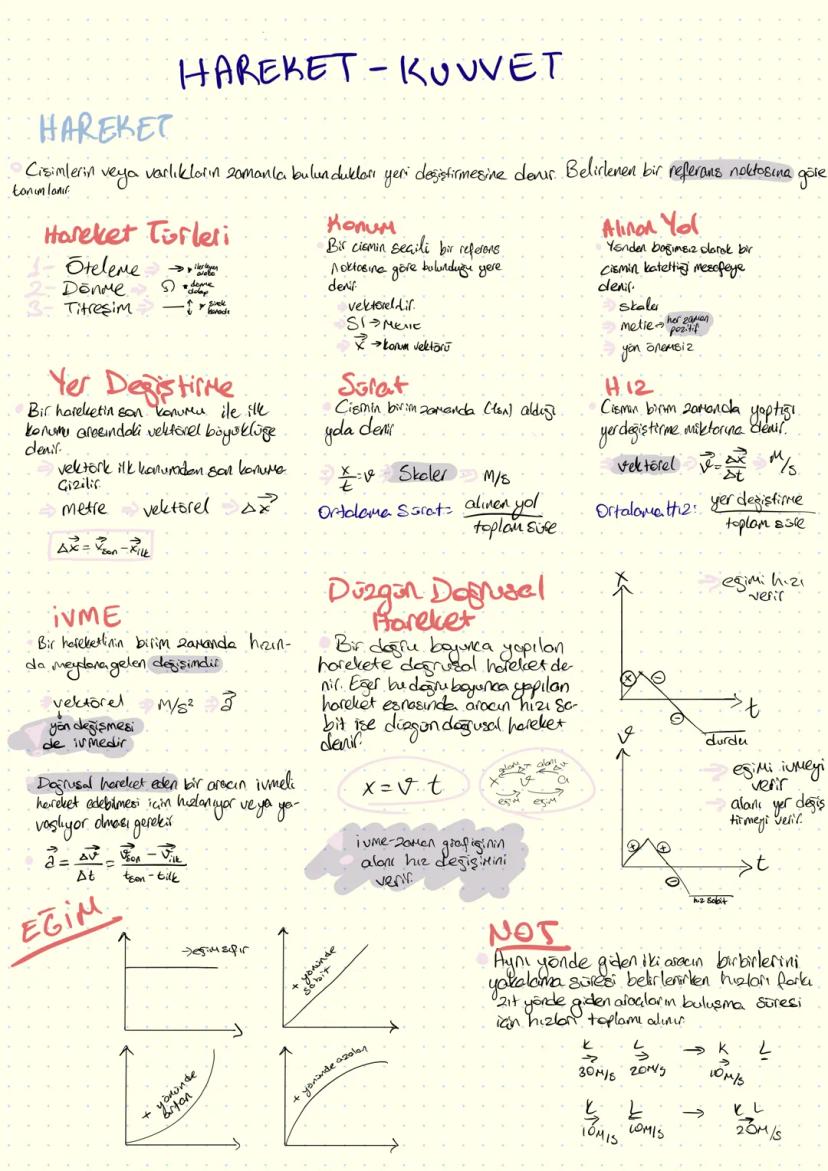 HAREKET - KUVVET
HAREKET
Cisimlerin veya varlıkların zamanla bulundukları yeri değiştirmesine denir. Belirlenen bir referans noktasına göre
tanımlanır.
Hareket Türleri
1- Öteleme → ilerleyen araba
2- Dönme → dönme dolap
3- Titreşim →
Konum
Bir cismin seçili bir referans
noktasına göre bulunduğu yere
denir.
vektöreldir.
SI → Metre
x⃗ → konum vektörü
Alınan Yol
Yönden bağımsız olarak bir
cismin katettiği mesafeye
denir.
skaler
metre → her zaman pozitif
yön önemsiz
Yer Değiştirme
Bir hareketin son konumu ile ilk
konumu arasındaki vektörel büyüklüğe
denir.
vektörk ilk konumdan son konuma
çizilir.
metre → vektörel → Δx⃗
Δx⃗ = v⃗son - x⃗ilk
Sürat
Cismin birim zamanda (1sn) aldığı
yola denir
x/t = v → Skaler → M/S
Ortalama Sürat = alınan yol / toplam süre
Hız
Cismin birim zamanda yaptığı
yer değiştirme miktarına denir.
vektörel → v⃗ = Δx⃗/Δt → M/s
Ortalama Hız: yer değiştirme / toplam süre
İVME
Bir hareketlinin birim zamanda hızın-
da meydana gelen değişimdir
vektörel → M/S² → a⃗
yön değişmesi
de ivmedir
Doğrusal hareket eden bir aracın ivmeli
hareket edebilmesi için hızlanıyor veya ya-
vaşlıyor olması gerekir
a⃗ = Δv⃗/Δt = (v⃗son - v⃗ilk)/(tson - tilk)
Düzgün Doğrusal
Hareket
Bir doğru boyunca yapılan
harekete doğrusal hareket de-
nir. Eğer bu doğru boyunca yapılan
hareket esnasında aracın hızı sa-
bit ise düzgün doğrusal hareket
denir.
x = v · t
alan alan
x v a
eğim eğim
ivme-zaman grafiğinin
alanı hız değişimini
verir.
x
→ eğimi hızı
verir
+ -
-
t
durdu
v
→ eğimi ivmeyi
verir
→ alanı yer değiş
tirmeyi verir.
+ +
-
t
hız sabit
EĞİM
→ eğim sıfır
+ yönünde
sabit
+ yönünde
artan
+ yönünde azalan
NOT
Aynı yönde giden iki aracın birbirlerini
yakalama süresi belirlenirken hızları farkı
zıt yönde giden araçların buluşma süresi
için hızları toplamı alınır.
K L → K L
30M/S 20M/S 10M/S
K L → K L
10M/S 10M/S 20M/S